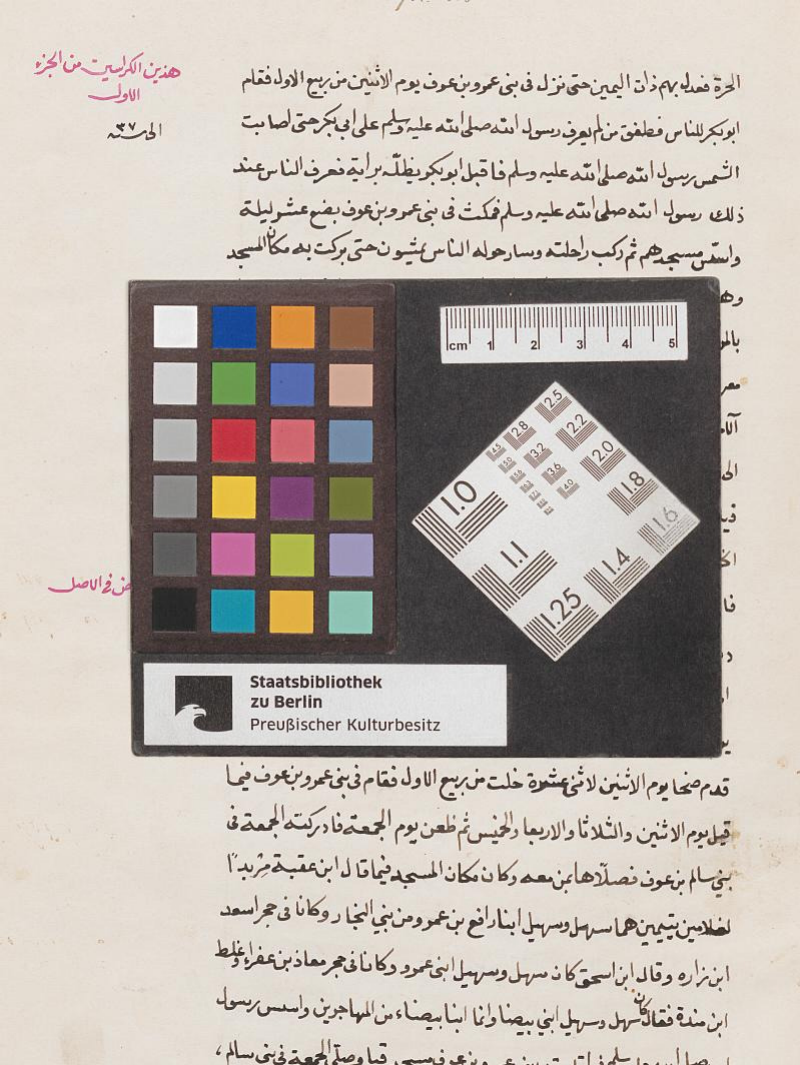 هذين الكراسين من الجزء
الاول
الى سنه ٣٧
الحرة فعدل بهم ذات اليمين حتى نزل فى بنى عمرو بن عوف يوم الاثنين من ربيع الاول فقام
ابو بكر للناس فطفق من لم يعرف رسول الله صلى الله عليه وسلم على ابى بكر حتى اصابت
الشمس رسول الله صلى الله عليه وسلم فاقبل ابو بكر يظلّه براية فعرف الناس عند
ذلك رسول الله صلى الله عليه وسلم فمكث فى بنى عمرو بن عوف بضع عشر ليلة
واسّس مسجدهم ثم ركب راحلته وسار حوله الناس يمشون حتى بركت به مكان المسجد
وه
معر
الى
فا
فى الاصل
cm 1 2 3 4 5
2.5
2.8 2.2
4.5 3.2 2.0
3.6 1.8
4.0 1.6
1.0
1.1 1.4
1.25
Staatsbibliothek
zu Berlin
Preußischer Kulturbesitz
قدم ضحا يوم الاثنين لاثنى عشرة خلت من ربيع الاول فقام فى بنى عمرو بن عوف فيما
قيل يوم الاثنين والثلاثا والاربعا والخميس ثم ظعن يوم الجمعة فادركته الجمعة فى
بني سالم بن عوف فصلّاها بمن معه وكان مكان المسجد فيما قال ابن عقبة مربدًا
لغلامين يتيمين هما سهل وسهيل ابنا رافع بن عمرو من بني النجار وكانا فى حجر اسعد
ابن زاره وقال ابن اسحق كان سهل وسهيل ابنى عمرو وكانا فى حجر معاذ بن عفراء وغلط
ابن مندة فقال كان سهل وسهيل ابني بيضا وانما ابنا بيضاء من المهاجرين واسس رسول
فى بنى سالم ،